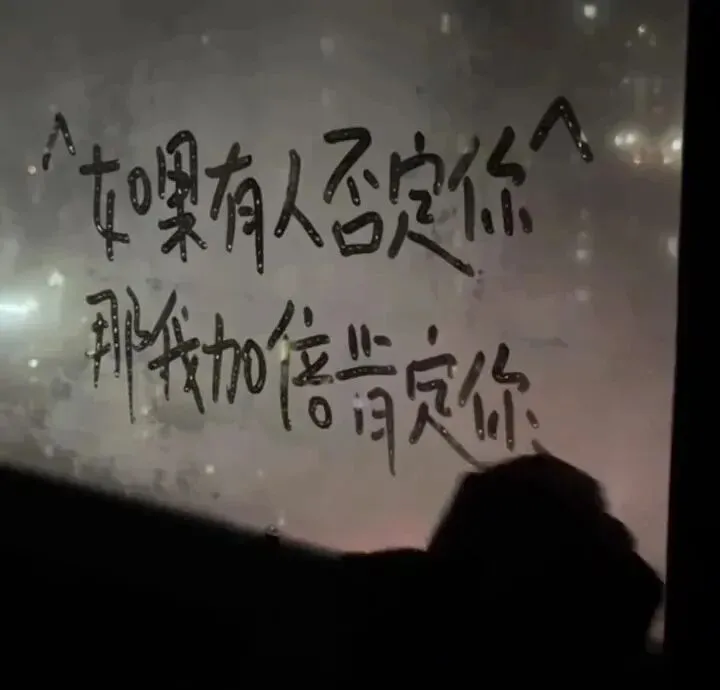 ^如果有人否定你^
那我加倍肯定你